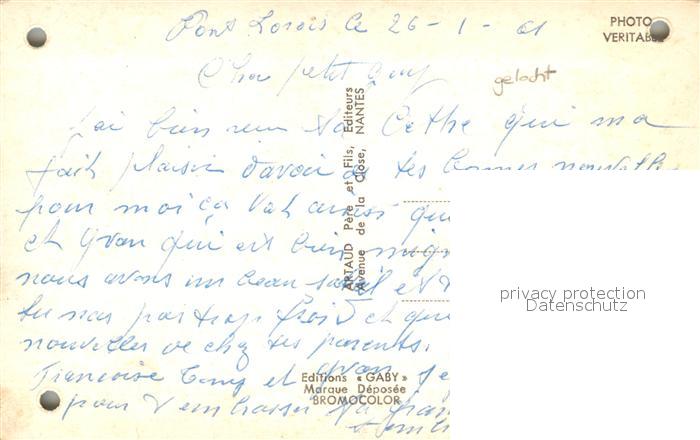 Pont Lorois le 26-1-61
PHOTO
VERITABLE
Cher petit Guy
gelocht
J'ai bien reçu ta lettre qui m'a
fait plaisir d'avoir de tes bonnes nouvelles
pour moi ça va aussi
et Yvan qui est bien
nous avons un beau soleil et
tu n'as pas trop froid et que
nouvelles de chez tes parents.
Françoise Tony et Yvan se
pour t'embrasser ta
ARTAUD Père et Fils, Editeurs
Avenue de la Close, NANTES
Editions « GABY »
Marque Déposée
BROMOCOLOR
privacy protection
Datenschutz